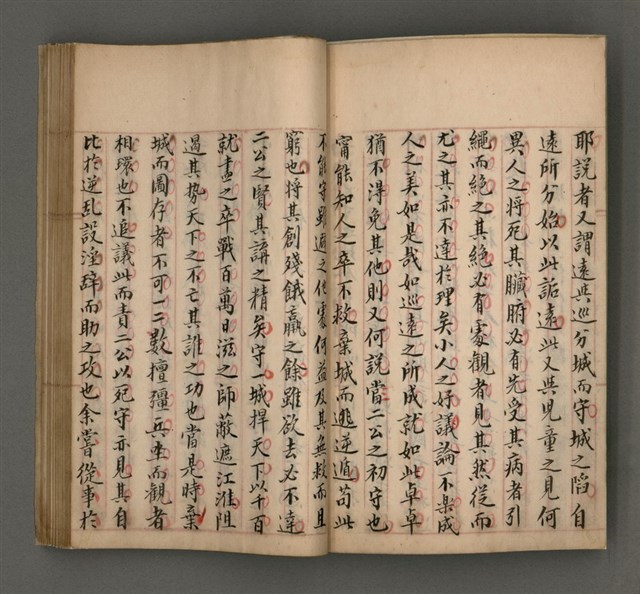 耶説者又謂遠與巡分城而守城之陷自
遠所分始以此詬遠此又與兒童之見何
異人之將死其臟腑必有先受其病者引
繩而絕之其絕必有處觀者見其然從而
尤之其亦不達於理矣小人之好議論不樂成
人之美如是哉如巡遠之所成就如此卓卓
猶不得免其他則又何說當二公之初守也
寧能知人之卒不救棄城而逃逆遁苟此
不能守雖避之他處何益及其無救而且
窮也將其創殘餓羸之餘雖欲去必不達
二公之賢其講之精矣守一城捍天下以千百
就盡之卒戰百萬日滋之師蔽遮江淮阻
遏其势天下之不亡其誰之功也當是時棄
城而圖存者不可一二數擅彊兵坐而觀者
相環也不追議此而責二公以死守亦見其自
比於逆乱設淫辞而助之攻也余嘗從事於